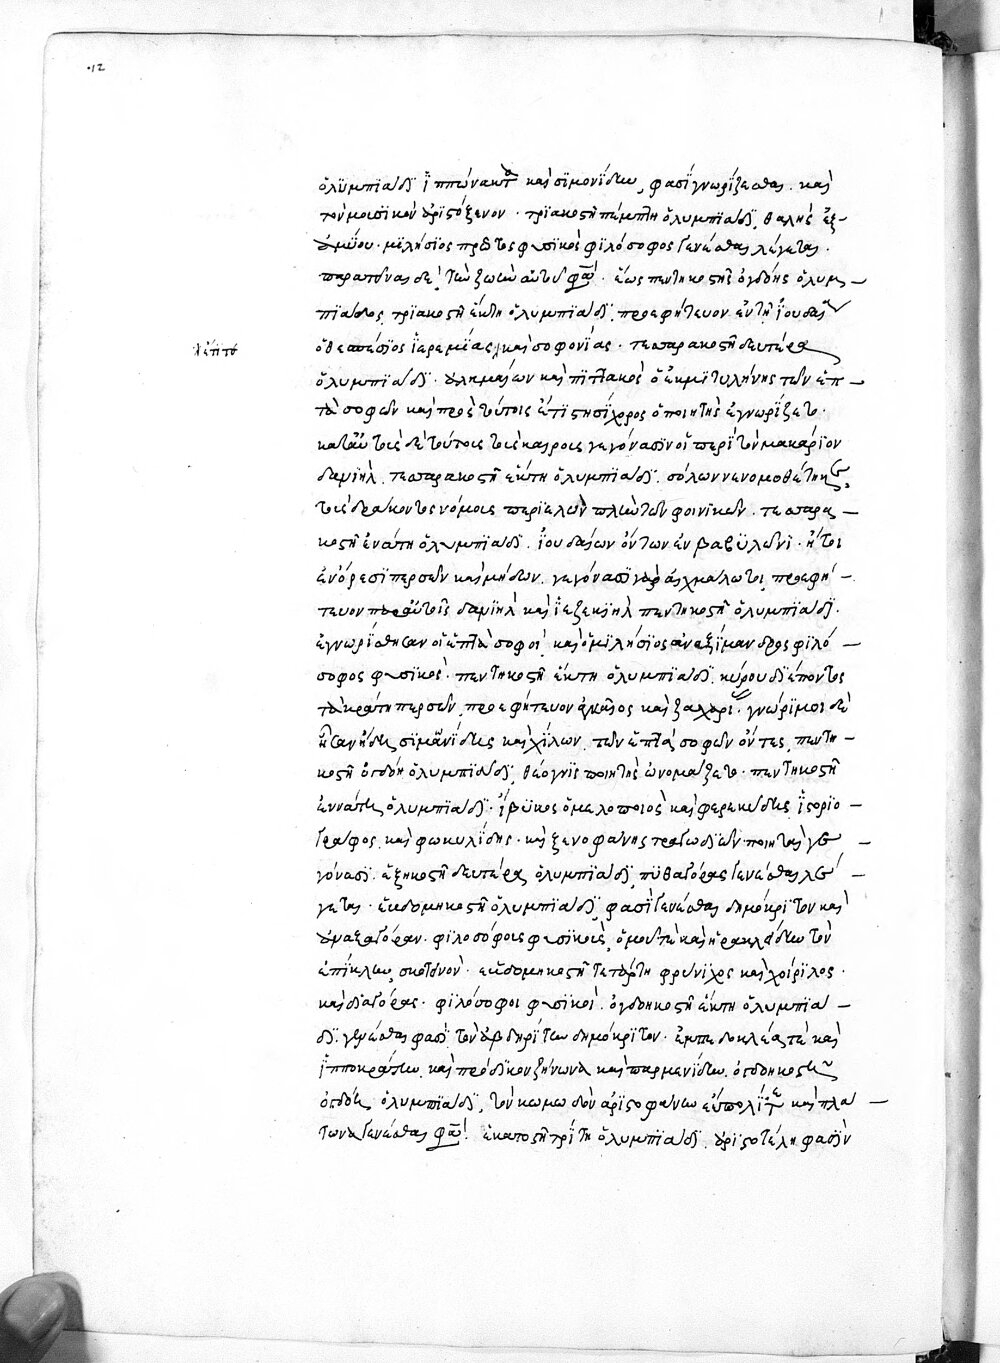 .12
ὀλυμπιάδι ἱππώνακτα καὶ σιμονίδην φασὶ γνωρίζεσθαι. καὶ
τὸν μουσικὸν ἀριστόξενον. τριακοστῇ πέμπτῃ ὀλυμπιάδι, θαλῆς ἐξ-
αμύου. μιλήσιος πρῶτος φυσικὸς φιλόσοφος γενέσθαι λέγεται.
παρατεῖναι δὲ τὴν ζωὴν αὐτοῦ φασὶ. ἕως πεντηκοστῆς ὀγδόης ὀλυμ-
πιάδος, τριακοστῇ ἕκτῃ ὀλυμπιάδι, προεφήτευον ἐν τῇ ἰουδαίᾳ
ὁ θεσπέσιος ἱερεμίας καὶ σοφονίας. τεσσαρακοστῇ δευτέρᾳ
ὀλυμπιάδι. ἀλκμαίων καὶ πιττακὸς ὁ ἐκ μιτυλήνης τῶν ἑπ-
τὰ σοφῶν καὶ πρὸς τούτοις ἔτι στησίχορος ὁ ποιητὴς ἐγνωρίζετο.
κατ' αὐτοὺς δὲ τούτους τοὺς καιροὺς γεγόνασιν οἱ περὶ τὸν μακάριον
δανιὴλ. τεσσαρακοστῇ ἕκτῃ ὀλυμπιάδι. σόλων νενομοθέτηκε
τοὺς δράκοντος νόμους περιελὼν πλὴν τῶν φοινικῶν. τεσσαρα-
κοστῇ ἐνάτῃ ὀλυμπιάδι. ἰουδαίων ὄντων ἐν βαβυλῶνι. ἤτοι
ἐν ὄρεσι περσῶν καὶ μήδων. γεγόνασι γὰρ αἰχμάλωτοι, προεφή-
τευον παρ' αὐτοῖς δανιὴλ καὶ ἰεζεκιὴλ πεντηκοστῇ ὀλυμπιάδι.
ἐγνωρίσθησαν οἱ ἑπτὰ σοφοὶ, καὶ ὁ μιλήσιος ἀναξίμανδρος φιλό-
σοφος φυσικὸς. πεντηκοστῇ ἕκτῃ ὀλυμπιάδι, κύρου διέποντος
τὰ κράτη περσῶν, προεφήτευον ἀγγαῖος καὶ ζαχαρί. γνώριμοι δὲ
ἦσαν ἤδη σιμωνίδης καὶ χίλων, τῶν ἑπτὰ σοφῶν ὄντες, πεντη-
κοστῇ ὀγδόῃ ὀλυμπιάδι, θέογνις ποιητὴς ὠνομάζετο. πεντηκοστῇ
ἐννάτῃ ὀλυμπιάδι. ἴβυκος ὁ μελοποιὸς καὶ φερεκύδης ἱστοριο-
γράφος, καὶ φωκυλίδης. καὶ ξενοφάνης τραγωδιῶν ποιηταὶ γε-
γόνασι. ἑξηκοστῇ δευτέρᾳ ὀλυμπιάδι, πυθαγόρας γενέσθαι λέ-
γεται. ἑβδομηκοστῇ ὀλυμπιάδι, φασὶ γενέσθαι δημόκριτον καὶ
ἀναξαγόραν. φιλοσόφους φυσικοὺς, ὁμοῦ τε καὶ ἡράκλειτον τὸν
ἐπίκλην σκοτεινὸν. ἑβδομηκοστῇ τετάρτῃ φρύνιχος καὶ χοιρίλος.
καὶ διαγόρας. φιλόσοφοι φυσικοὶ. ὀγδοηκοστῇ ἕκτῃ ὀλυμπιά-
δι. γενέσθαι φασὶ τὸν ἀβδηρίτην δημόκριτον. ἐμπεδοκλέα τὲ καὶ
ἱπποκράτην, καὶ πρόδικον ζήνωνα καὶ παρμενίδην. ὀγδοηκοστῇ
ὀγδόῃ ὀλυμπιάδι, τὸν κωμωδὸν ἀριστοφάνην εὔπολίν τε καὶ πλά-
τωνα γενέσθαι φασὶ. ἑκατοστῇ τρίτῃ ὀλυμπιάδι. ἀριστοτέλη φασὶν